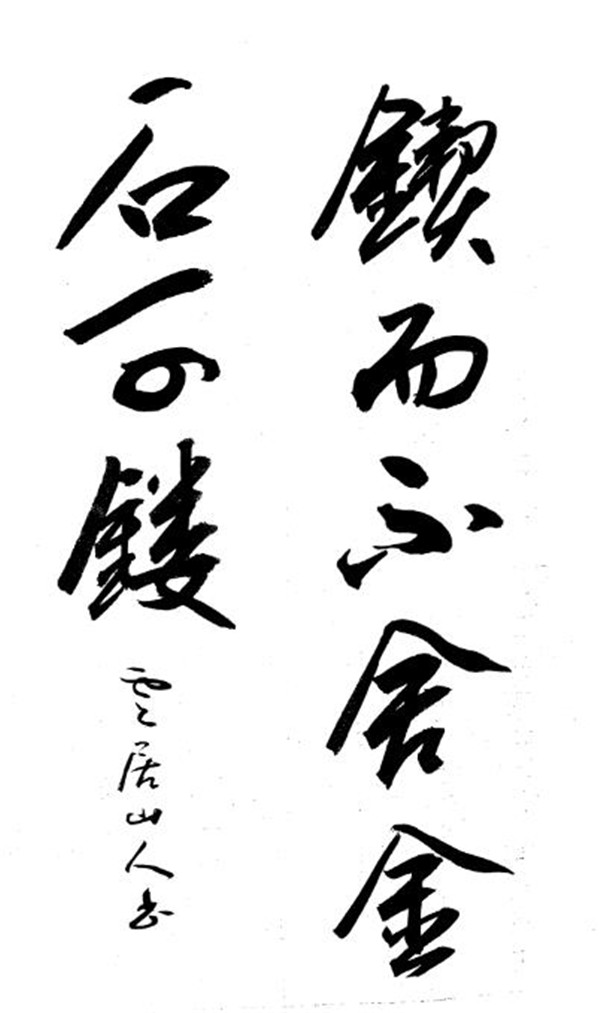 鍥而不舍金
石可镂
雲居山人书